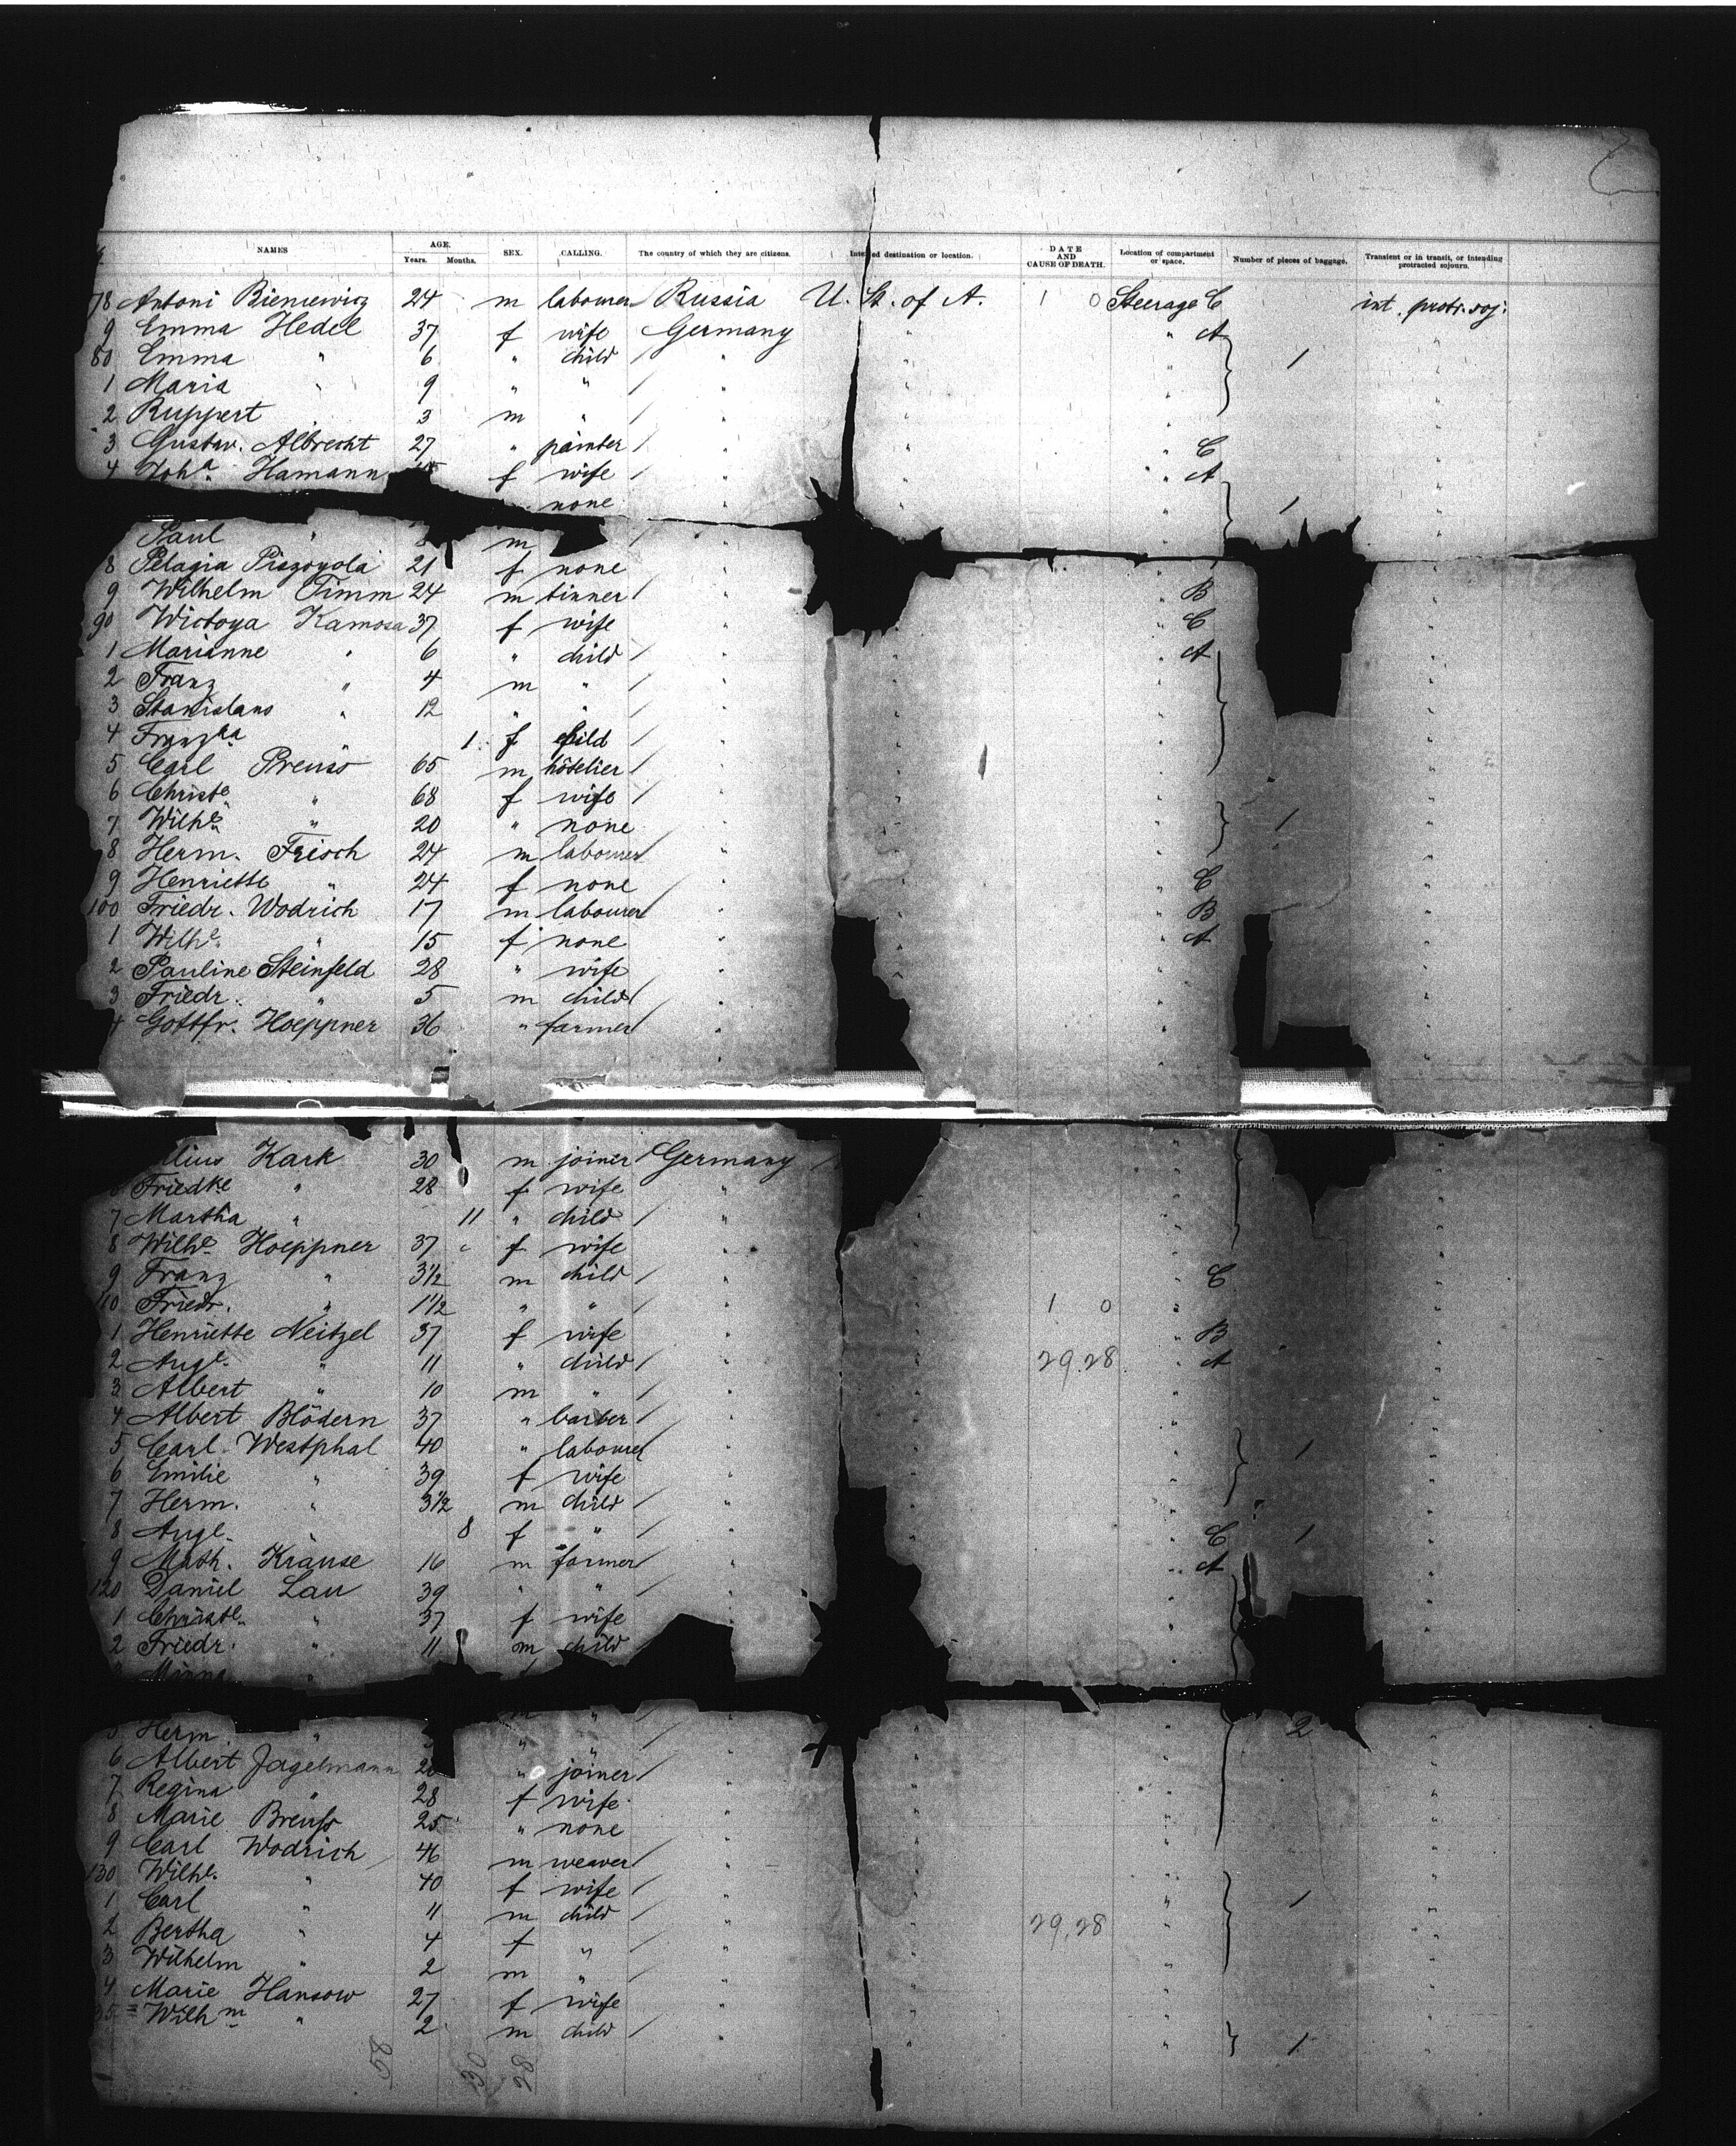 NAMES AGE. Years. Months. SEX. CALLING. The country of which they are citizens. Intended destination or location. DATE AND CAUSE OF DEATH. Location of compartment or space. Number of pieces of baggage. Transient or in transit, or intending protracted sojourn.
78 Antoni Bieniewicz 24 m labourer Russia U. St. of A. 1 0 Steerage C int. protr. soj.
9 Emma Hedel 37 f wife Germany " " A "
80 Emma " 6 " child / " " " 1 "
1 Maria " 9 " " / " " " "
2 Ruppert " 3 m " / " " " "
3 Gustav. Albrecht 27 " painter / " " " C "
4 Joha. Hamann f wife / " " " A "
none " " " 1 "
Paul " m / " " "
8 Pelagia 21 f none " " "
9 Wilhelm Timm 24 m tinner / " " B "
90 Wictoya Kamosa 37 f wife " " C "
1 Marianne " 6 " child / " " A "
2 Franz " 4 m " / " " "
3 Stanislaus " 12 " " / " " "
4 Franzka " 1 f child / " " "
5 Carl Preuss 65 m hôtelier / " " "
6 Christe " 68 f wife / " " "
7 Wilhe " 20 " none " " 1 "
8 Herm. Frisch 24 m labourer / " " "
9 Henriette " 24 f none / " " C "
100 Friedr. Wodrich 17 m labourer / " " B "
1 Wilhe. " 15 f none " " A "
2 Pauline Steinfeld 28 " wife " " "
3 Friedr. " 5 m child / " " "
4 Gottfr. Hoeppner 36 " farmer / " " "
lius Kark 30 m joiner / Germany
Friedke " 28 f wife " " "
7 Martha " 11 " child / " " "
8 Wilhe. Hoeppner 37 f wife " " "
9 Franz " 3 1/2 m child / " " C "
110 Friedr. " 1 1/2 " " / " 1 0 " "
1 Henriette Neitzel 37 f wife " " B "
2 Auge. " 11 " child / " 29.28 " A "
3 Albert " 10 m " / " " "
4 Albert Blödern 37 " barber / " " "
5 Carl Westphal 40 " labourer / " " 1 "
6 Emilie " 39 f wife " " "
7 Herm. " 3 1/2 m child / " " "
8 Auge. " 8 f " / " " C 1 "
9 Math. Krause 16 m farmer / " " A "
120 Daniel Lau 39 " " / " " "
1 Christe. " 37 f wife " " "
2 Friedr. " 11 m child " "
3 Minna "
5 Herm. " " " / " " 2 "
6 Albert Jagelmann " joiner / " " "
7 Regina " 28 f wife " " "
8 Marie Breuss 25 " none " " "
9 Carl Wodrich 46 m weaver / " " "
130 Wilhe. " 40 f wife / " " "
1 Carl " 11 m child / " " 1 "
2 Bertha " 4 f " / " 29,28 " "
3 Wilhelm " 2 m " / " " "
4 Marie Hansow 27 f wife " " "
35 = Wilhm " 2 m child / " " 1 "
58 30 28